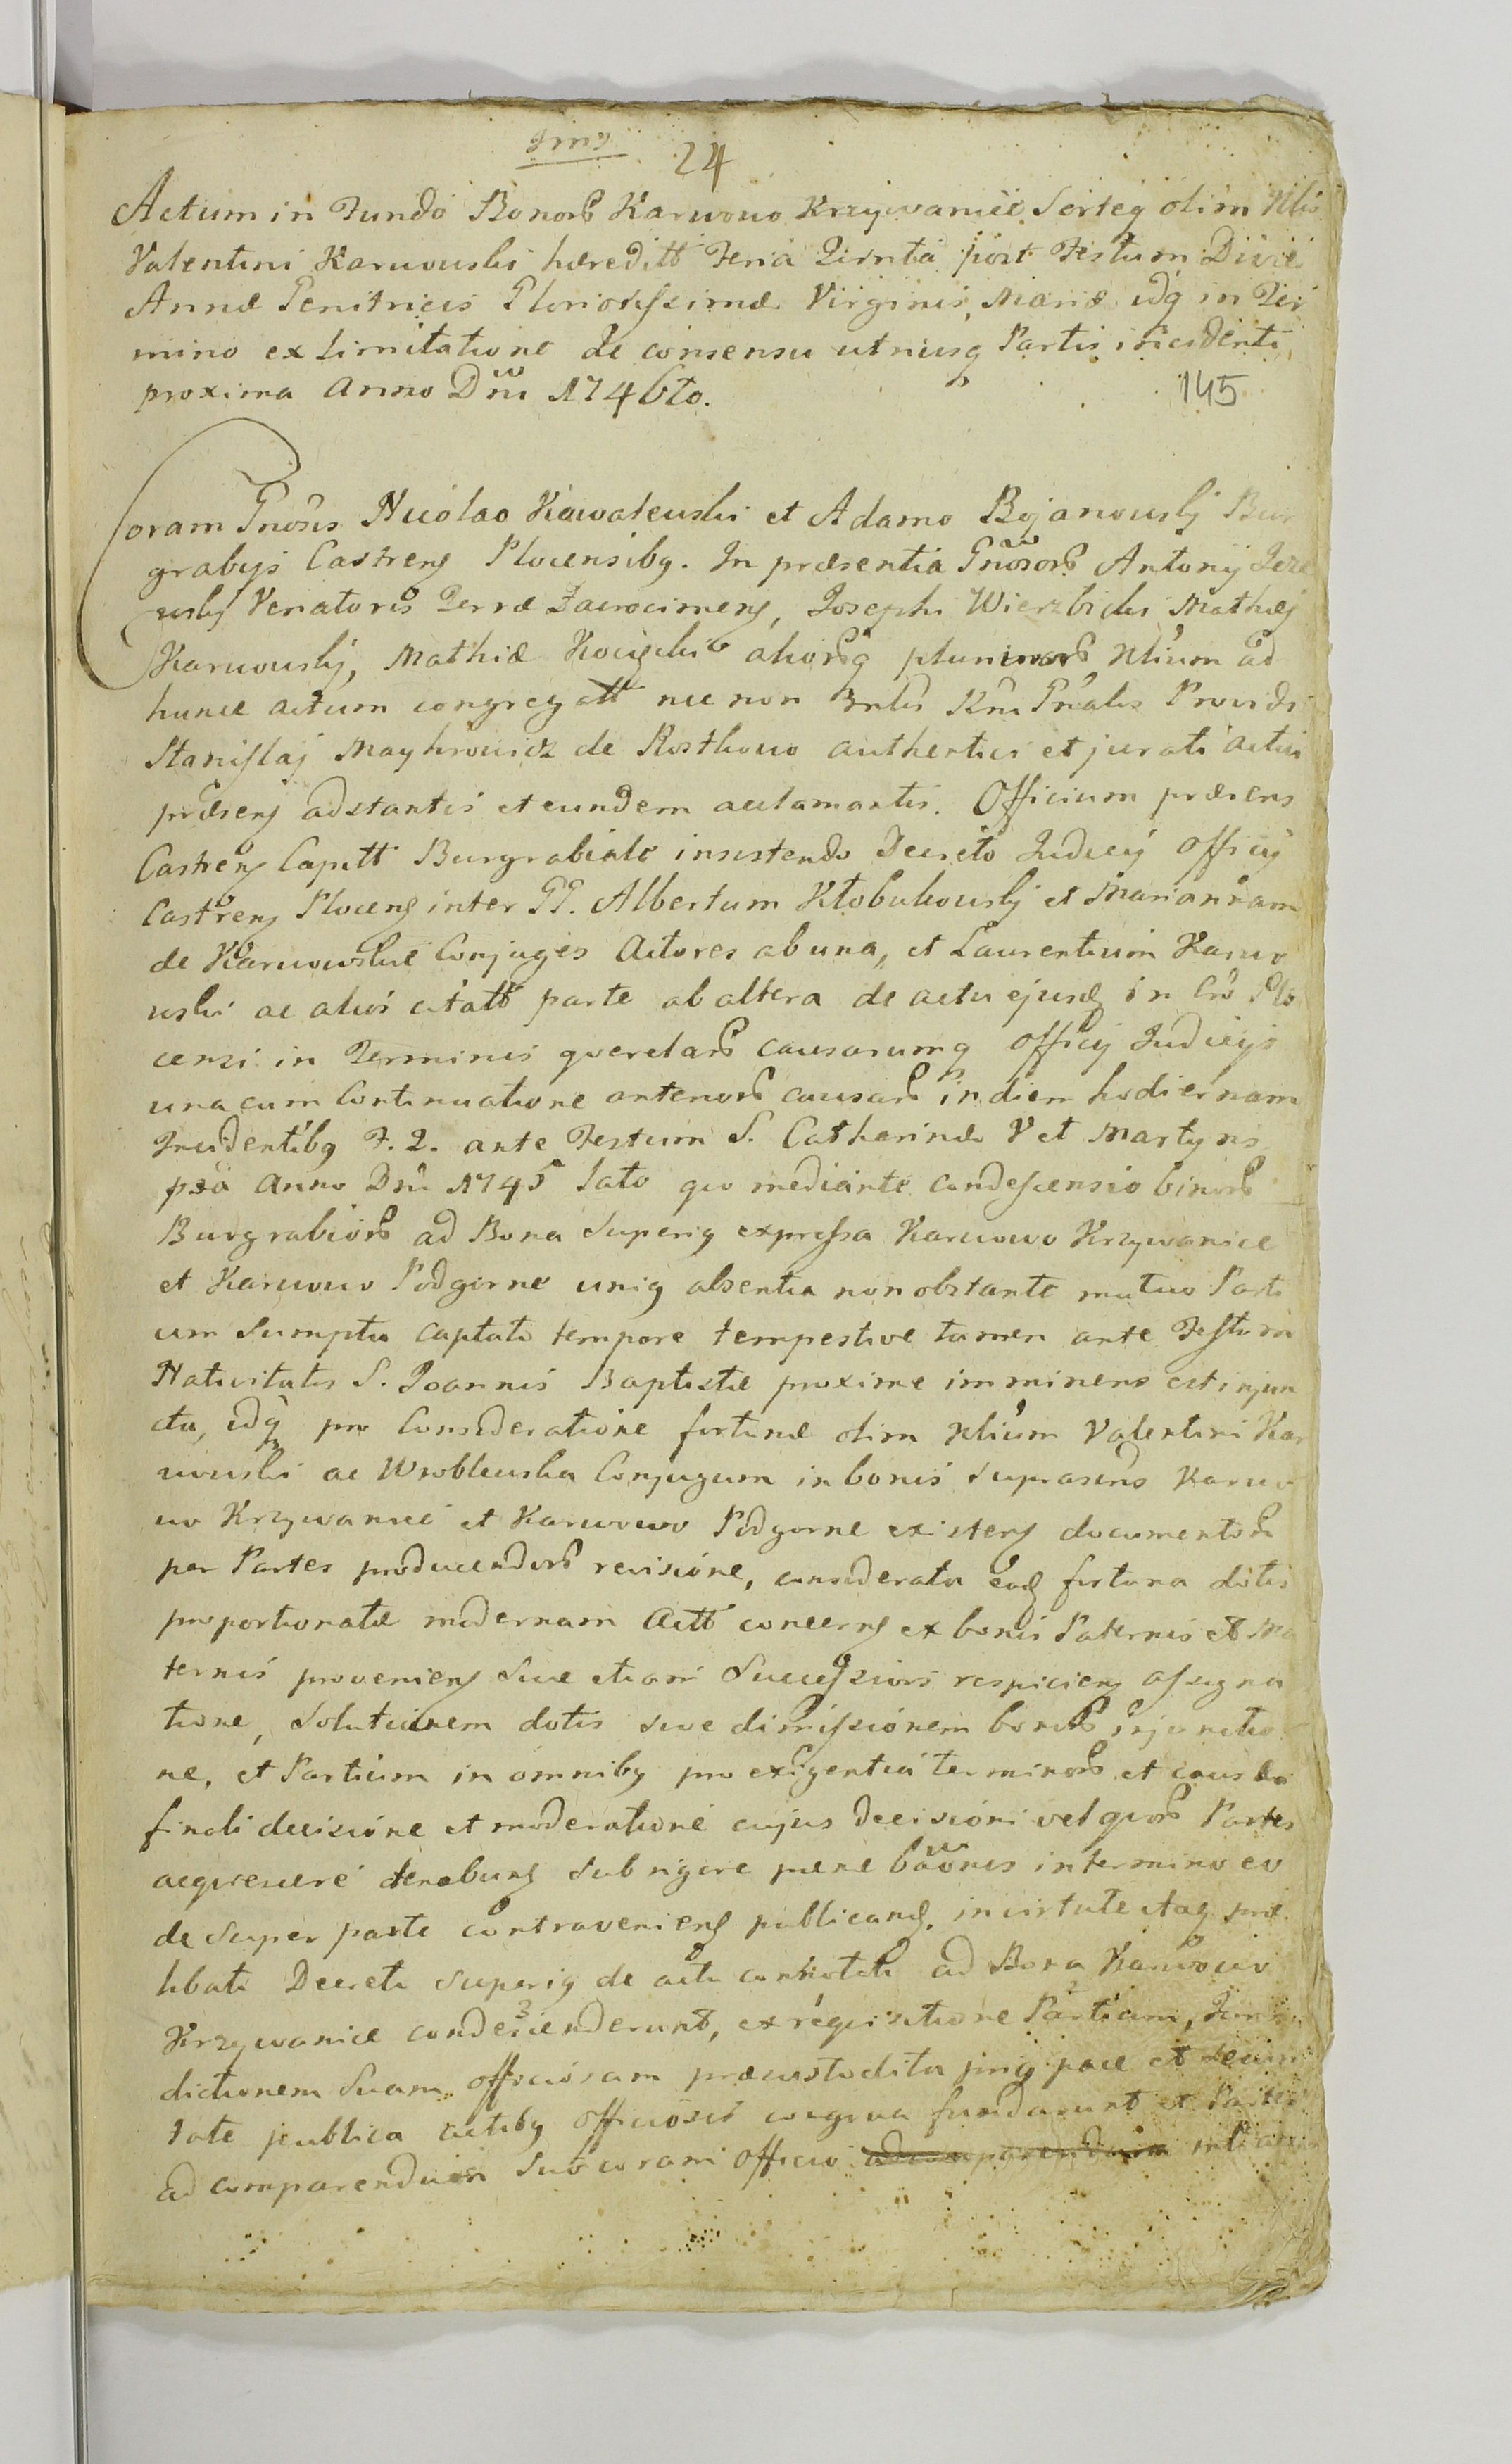 24
Actum in Fundo Bonorb Karwowo Krzywanice Sorteg olim Nlis
Valentini Karwowski hæreditt Feria Qirnta post Festum Divæ
Annæ Genitricis Gloriosissimæ Virginis Mariæ idq in Ter
mino ex Limitatione de consensu utriusq Partis incidenti
proxima Anno Dni 1746to.
145
Coram Gnosis Nicolao Kawalewski et Adamo Bojanowskj Bur
grabijs Castrens Plocensibq. In præsentia Gnosorb Antonij
wskj Venatoris Terræ Zacrocimens, Josephi Wierzbicki Mathæj
Karwowskj, Mathiæ aliorbq plurimorb Nlium ad
hunce actum congregatt nec non Mrlis Rni Gnalis Providi
Stanislaj Maychrowicz de Rostkowo authentici et jurati actui
præsens adstantis et eundem acclamantis. Officium præsens
Castrens Capitt Burgrabiale insistendo Decreto Judicij Officij
Castrens Plocens inter GG. Albertum Kłobukowskj et Mariannam
de Karwowskie Conjuges Actores ab una, et Laurentium Karwo
wski ac alios citatt parte ab altera de actu ejusd in Cro Plo
censi in Terminis qverelarb causarumq Officij Judicijs
una cum Continuatione anteriorb causarb in diem hodiernam
Incidentibq F. 2. ante Festum S. Catharinæ V et Martyris
pxa Anno Dni 1745 lato qvo mediante condescensio binorb
Burgrabiorb ad Bona Superiq expressa Karwowo Krzywanice
et Karwowo Podgorne uniq absentia non obstante mutuo Parti
um Sumptu captato tempore tempestive tamen ante Festum
Nativitatis S. Joannis Baptistæ proxime imminens est injun
cta, idq pro Consideratione fortunæ olim Nlium Valentini Kar
wowski ac Wroblewska Conjugum in bonis suprascris Karwo
wo Krzywanice et Karwowo Podgorne existens documentorb
per Partes producendorb revisione, considerata ead fortuna dotis
proportionatæ modernam Actt concerns ex bonis Paternis et Ma
ternis proveniens sive etiam Successions respiciens assigna
tione, Solutionem dotis sive dimissionem bonorb injunctio
ne, et Partium in omnibq pro exigentia terminorb et causæ
finali decisione et moderatione cujus decisioni vel qvorb Partes
acqviescere tenebuns sub rigore pænæ baonis in termino eo
de super parte contraveniens publicand. in virtute itaq præ
libati Decreti superiq de actu connotati ad Bona Karwowo
Krzywanice condescenderunt, ex reqvisitione Partium, Juris
dictionem Suam officiosam præcustodita pinq pace et Securi
tate publica actibq officiosis congrua fundarunt et Partes
ad comparendum Suo coram Officio